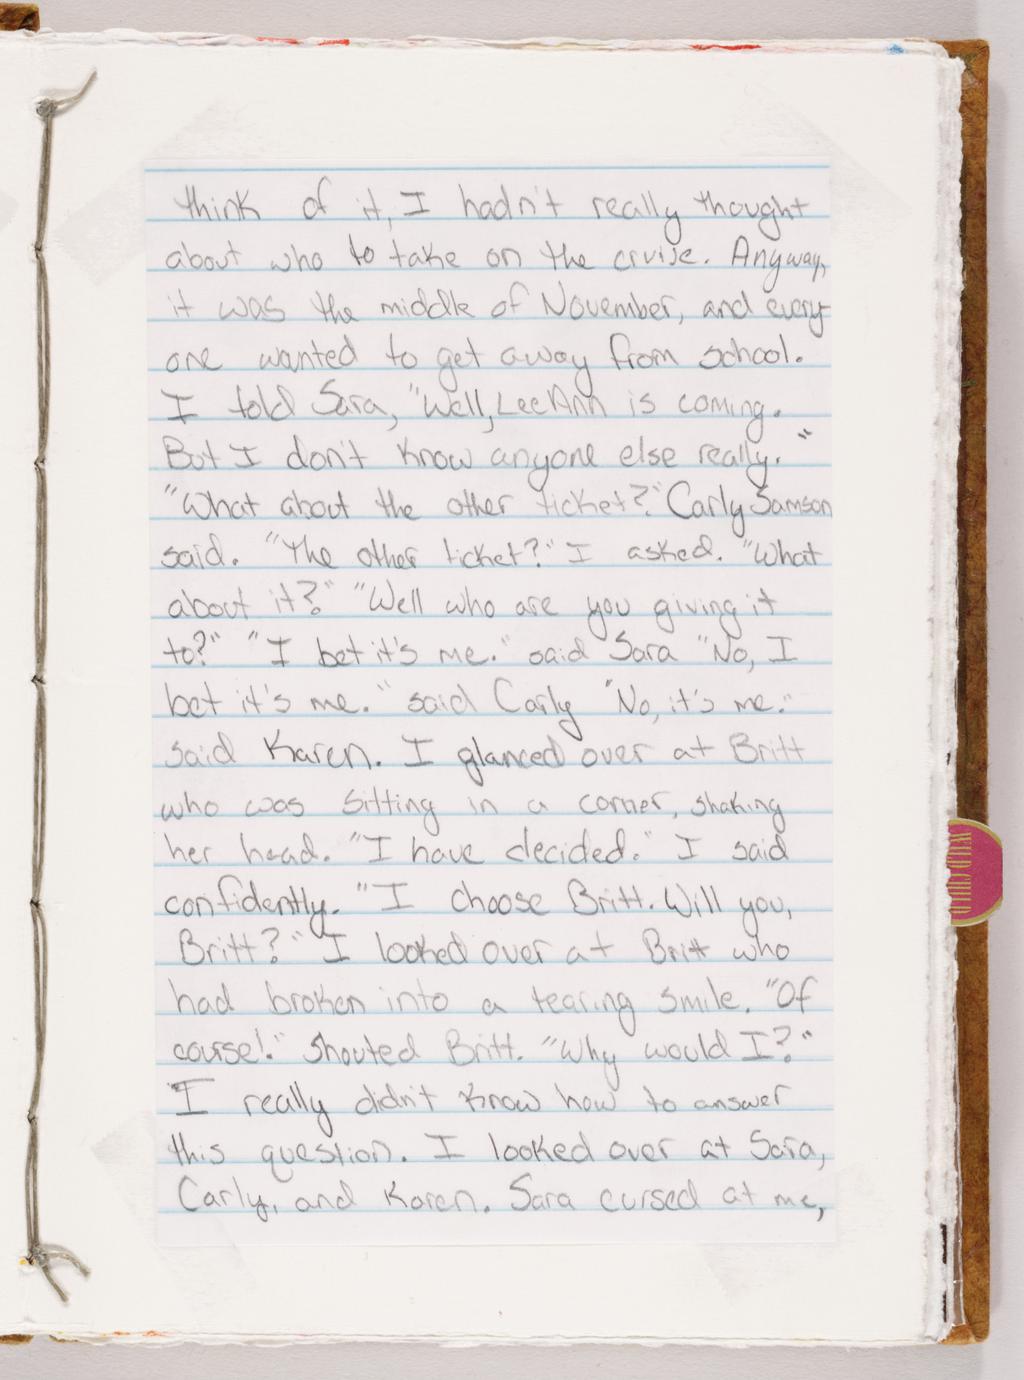 think of it, I hadn't really thought
about who to take on the cruise. Anyway,
it was the middle of November, and every
one wanted to get away from school.
I told Sara, "Well, LeeAnn is coming.
But I don't know anyone else really."
"What about the other ticket?" Carly Samson
said. "The other ticket?" I asked. "What
about it?" "Well who are you giving it
to?" "I bet it's me." said Sara "No, I
bet it's me." said Carly "No, it's me."
said Karen. I glanced over at Britt
who was sitting in a corner, shaking
her head. "I have decided." I said
confidently. "I choose Britt. Will you,
Britt?" I looked over at Britt who
had broken into a tearing smile. "Of
course!" shouted Britt. "Why would I?"
I really didn't know how to answer
this question. I looked over at Sara,
Carly, and Karen. Sara cursed at me,
WILD CHILD